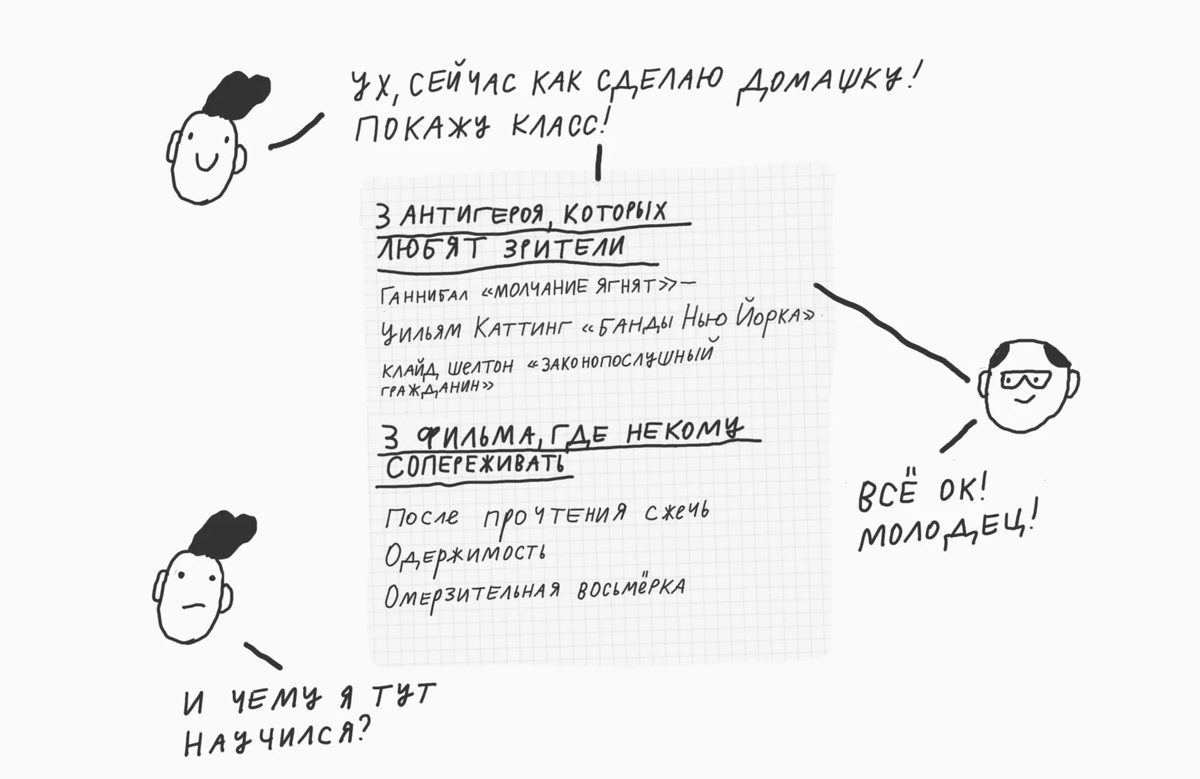 УХ, СЕЙЧАС КАК СДЕЛАЮ ДОМАШКУ!
ПОКАЖУ КЛАСС!
3 АНТИГЕРОЯ, КОТОРЫХ
ЛЮБЯТ ЗРИТЕЛИ
ГАННИБАЛ «МОЛЧАНИЕ ЯГНЯТ»—
УИЛЬЯМ КАТТИНГ «БАНДЫ НЬЮ ЙОРКА»
КЛАЙД ШЕЛТОН «ЗАКОНОПОСЛУШНЫЙ
ГРАЖДАНИН»
3 ФИЛЬМА, ГДЕ НЕКОМУ
СОПЕРЕЖИВАТЬ
ПОСЛЕ ПРОЧТЕНИЯ СЖЕЧЬ
ОДЕРЖИМОСТЬ
ОМЕРЗИТЕЛЬНАЯ ВОСЬМЁРКА
ВСЁ ОК!
МОЛОДЕЦ!
И ЧЕМУ Я ТУТ
НАУЧИЛСЯ?